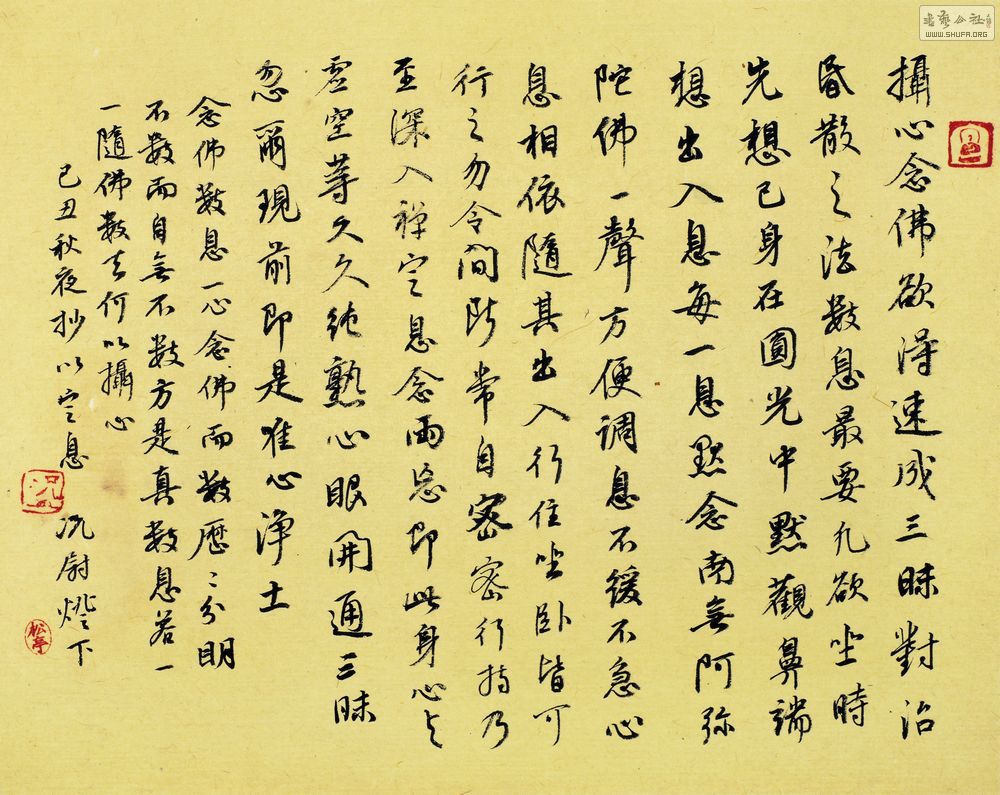 攝心念佛欲得速成三昧對治
昏散之法數息最要凡欲坐時
先想己身在圓光中默觀鼻端
想出入息每一息默念南無阿弥
陀佛一聲方便調息不緩不急心
息相依隨其出入行住坐卧皆可
行之勿令间断常自密密行持乃
至深入禅定息念兩忘即此身心与
虚空等久久純熟心眼開通三昧
忽爾現前即是唯心淨土
念佛數息一心念佛而數歷〻分明
不數而自無不數方是真數息若一
一隨佛數去何以攝心
己丑秋夜抄以定息 况尉燈下
松亭
書藝公社
WWW.SHUFA.ORG